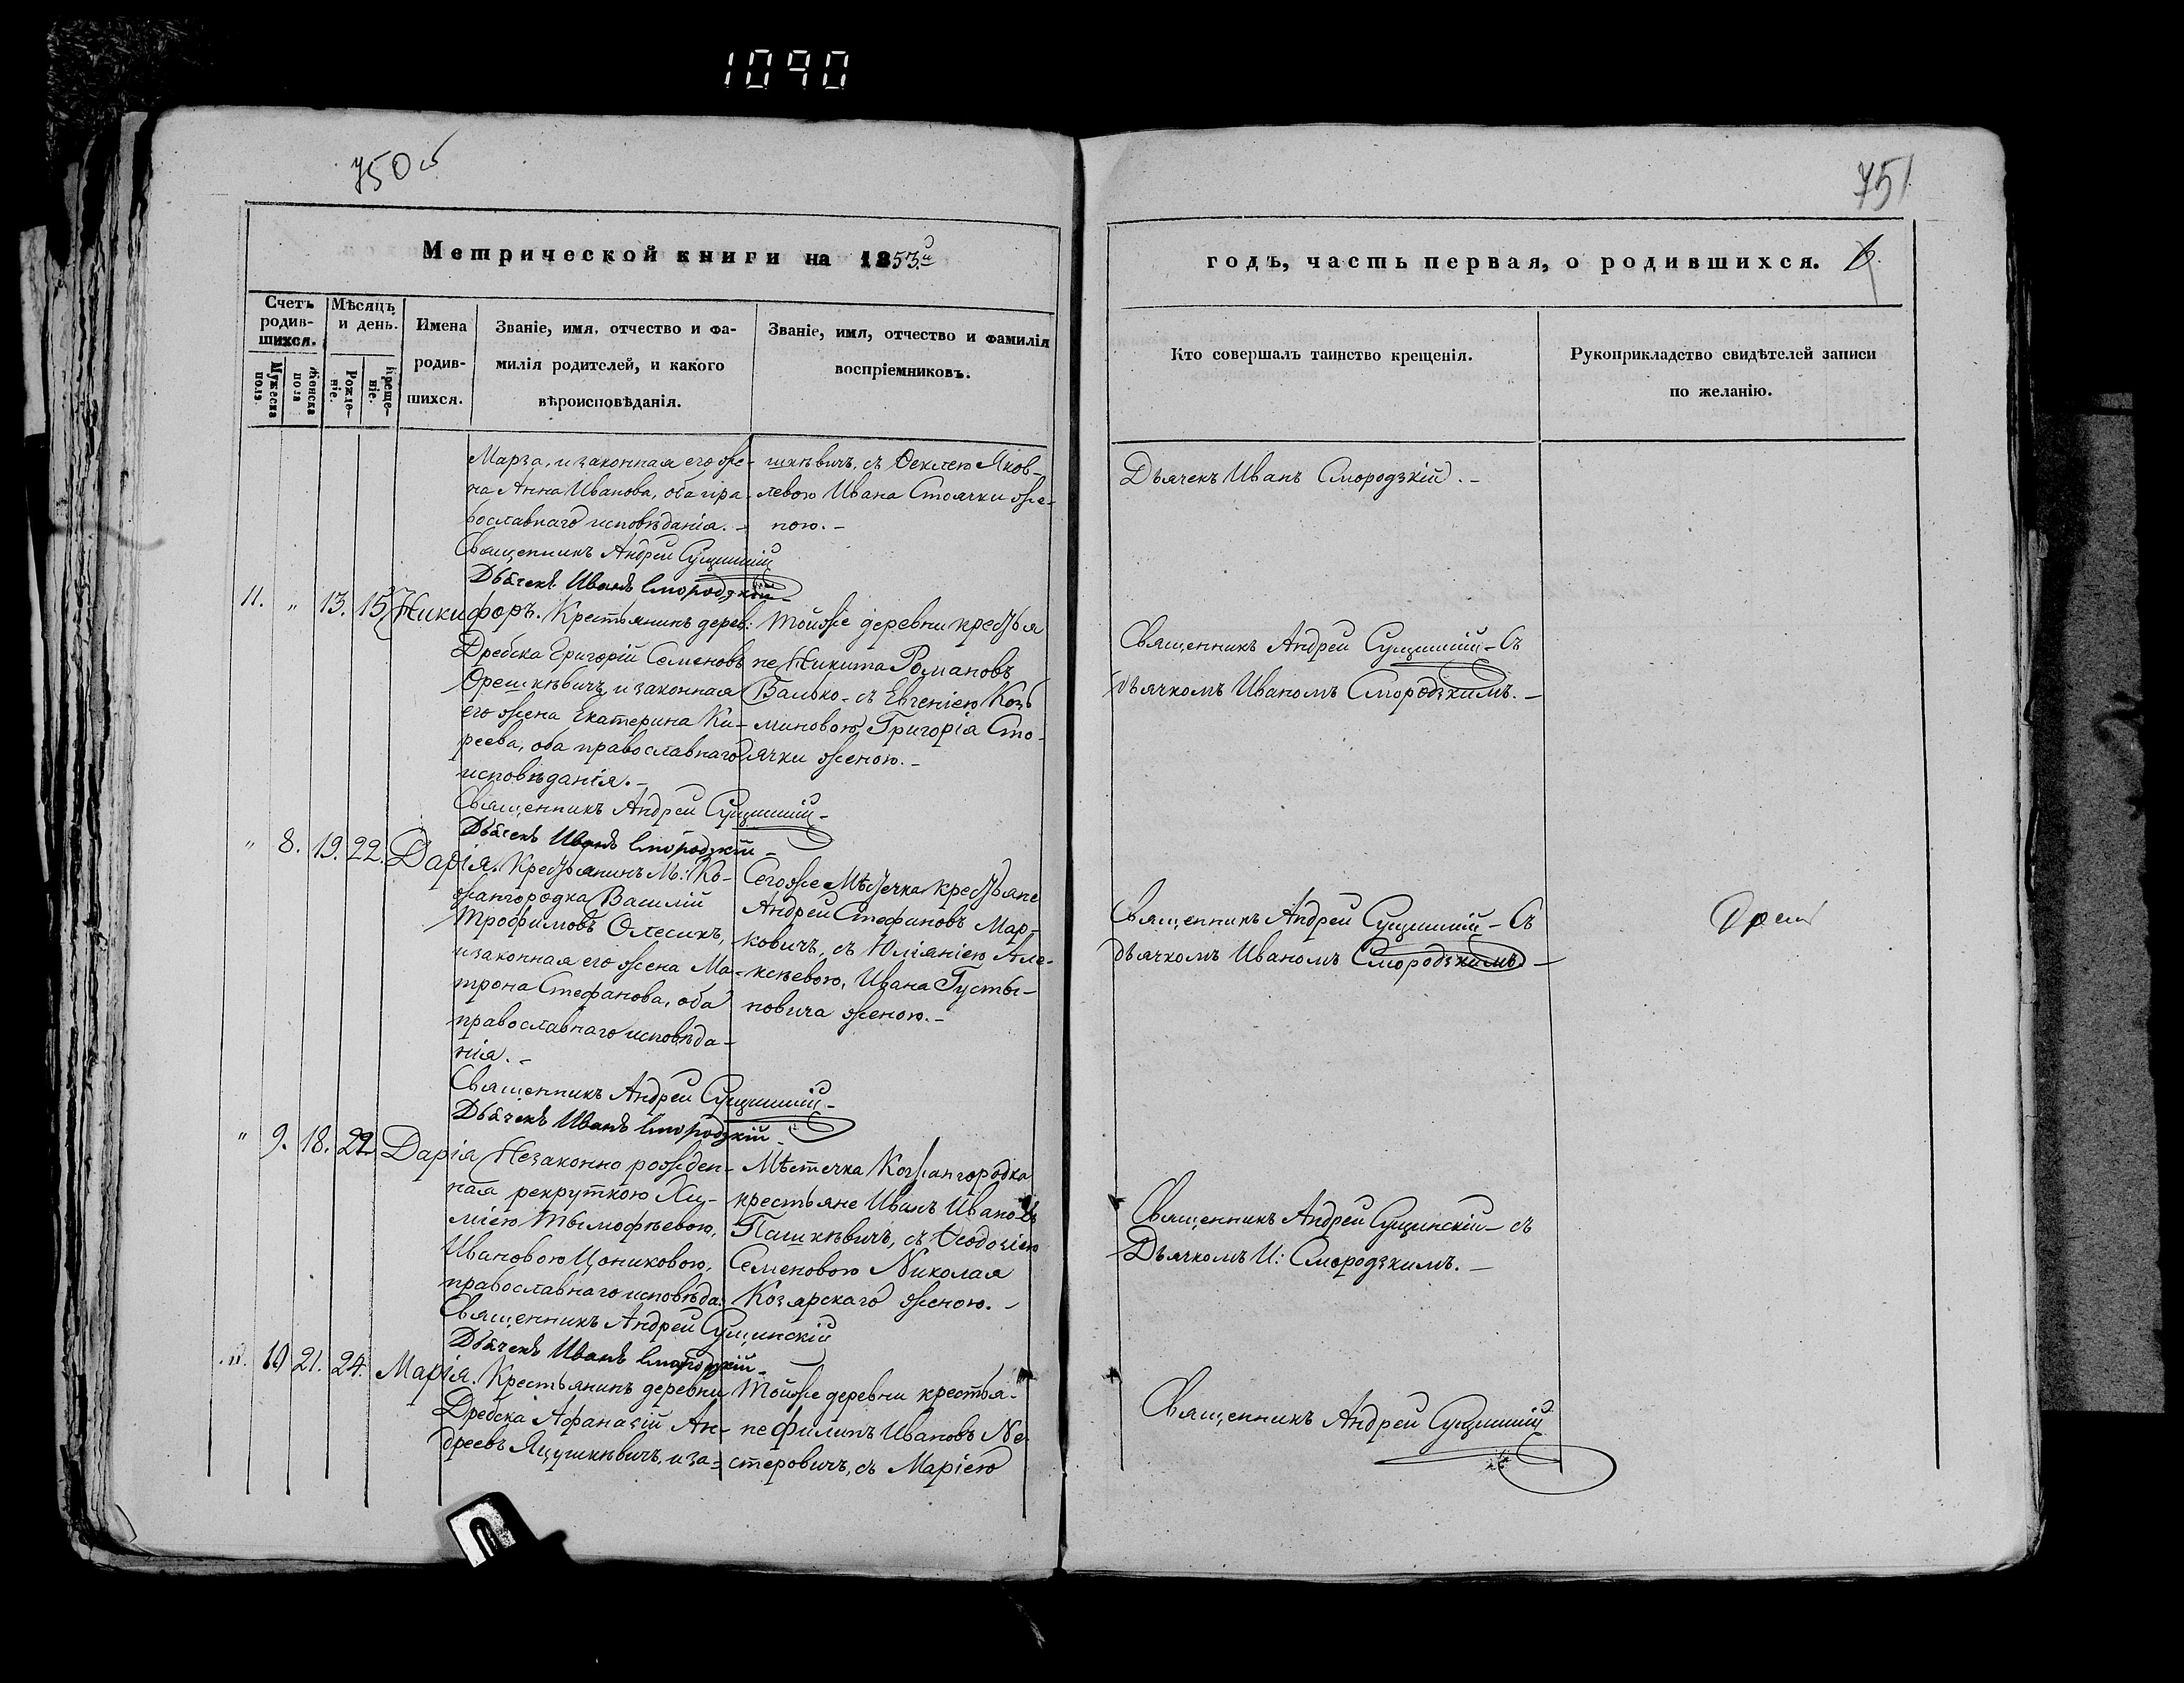 1090
750 об
751
Метрической книги на 1853й
годъ, часть первая, о родившихся. 6.
Счетъ родив-шихся.
Мѣсяцъ и день.
Имена родив-шихся.
Званіе, имя, отчество и фа-
милія родителей, и какого
вѣроисповѣданія.
Званіе, имя, отчество и фамилія
воспріемниковъ.
Мужеска пола.
Женска пола
Рожде-ніе.
Креще-ніе.
Кто совершалъ таинство крещенія.
Рукоприкладство свидѣтелей записи
по желанію.
Марза, и законная его же-
на Анна Иванова, оба пра-
вославнаго исповѣданія. -
Священникъ Андрей Сущинскій
Дьячекъ Иванъ Смородзкій -
шкѣвичъ, съ Ѳеклею Яков-
левою Ивана Стоячки же-
ною. -
Дьячекъ Иванъ Смородзкій. -
11. " 13. 15 Никифоръ.
Крестьянинъ дерев:
Дребска Григорій Семеновъ
Орешкѣвичъ, и законная
его жена Екатерина Ки-
реева, оба православнаго
исповѣданія. -
Священникъ Андрей Сущинскій -
Дьячекъ Иванъ Смородзкій -
Тойже деревни крестья
не Никита Романовъ
Валько - съ Евгеніею Козь
миновою, Григорія Сто-
ячки женою. -
Священникъ Андрей Сущинскій - Съ
дьячкомъ Иваномъ Смородзкимъ. -
" 8. 19. 22. Дарія.
Крестьянинъ М: Ко-
жангородка Василій
Трофимовъ Олесикъ,
и законная его жена Ма-
трона Стефанова, оба
православнаго исповѣда-
нія. -
Священникъ Андрей Сущинскій -
Дьячекъ Иванъ Смородзкій -
Сегоже Мѣстечка крестьяне
Андрей Стефановъ Мар-
ковичъ, съ Юліяніею Але-
ксѣевою, Ивана Густы-
новича женою. -
Священникъ Андрей Сущинскій - Съ
дьячкомъ Иваномъ Смородзкимъ -
" 9. 18. 22. Дарія
Незаконно рожден-
ная рекруткою
Тымофѣевою,
Ивановою Цониковою,
православнаго исповѣда:
Священникъ Андрей Сущинскій
Дьячекъ Иванъ Смородзкій -
Мѣстечка Кожангородка
крестьяне Иванъ Ивановъ
Пашкѣвичъ, съ Ѳеодосіею
Семеновою Николая
Козярскаго женою. -
Священникъ Андрей Сущинскій - съ
Дьячкомъ И: Смородзкимъ. -
" 10 21. 24. Марія.
Крестьянинъ деревни
Дребска Афанасій Ан-
дреевъ Яцушкѣвичъ, и за-
Тойже деревни крестья-
не Филипъ Ивановъ Не
стеровичъ, съ Маріею
Священникъ Андрей Сущинскій